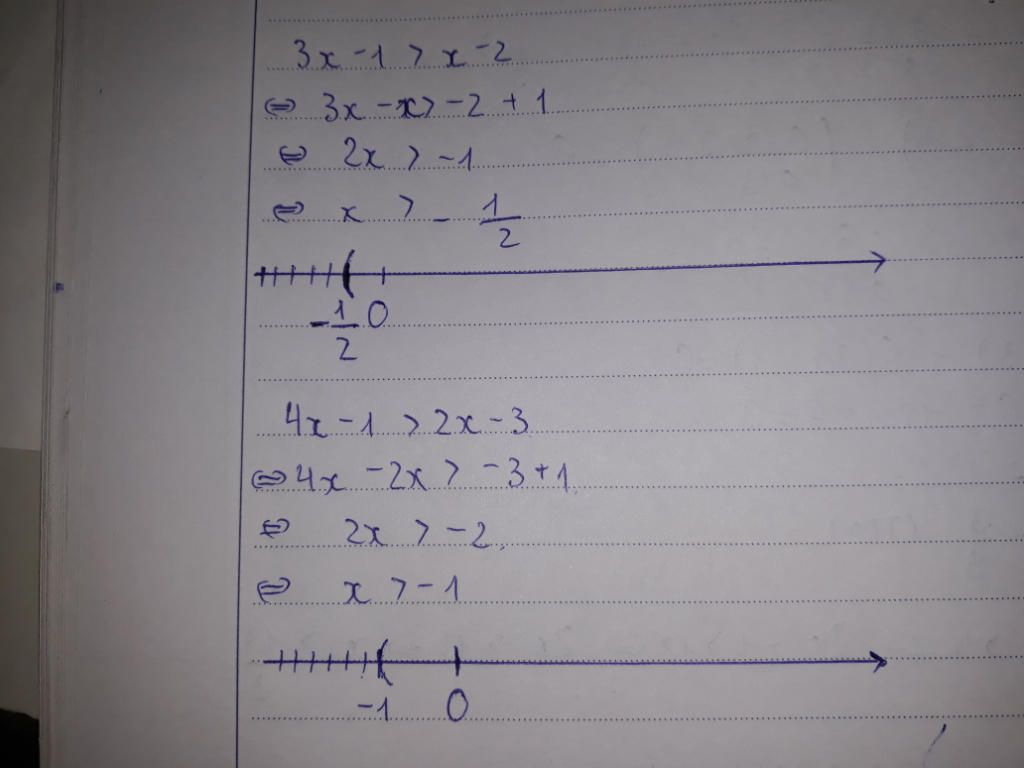 3x - 1 > x - 2
⇔ 3x - x > -2 + 1
⇔ 2x > -1
⇔ x > - 1/2
-1/2 0
4x - 1 > 2x - 3
⇔ 4x - 2x > -3 + 1
⇔ 2x > -2
⇔ x > -1
-1 0